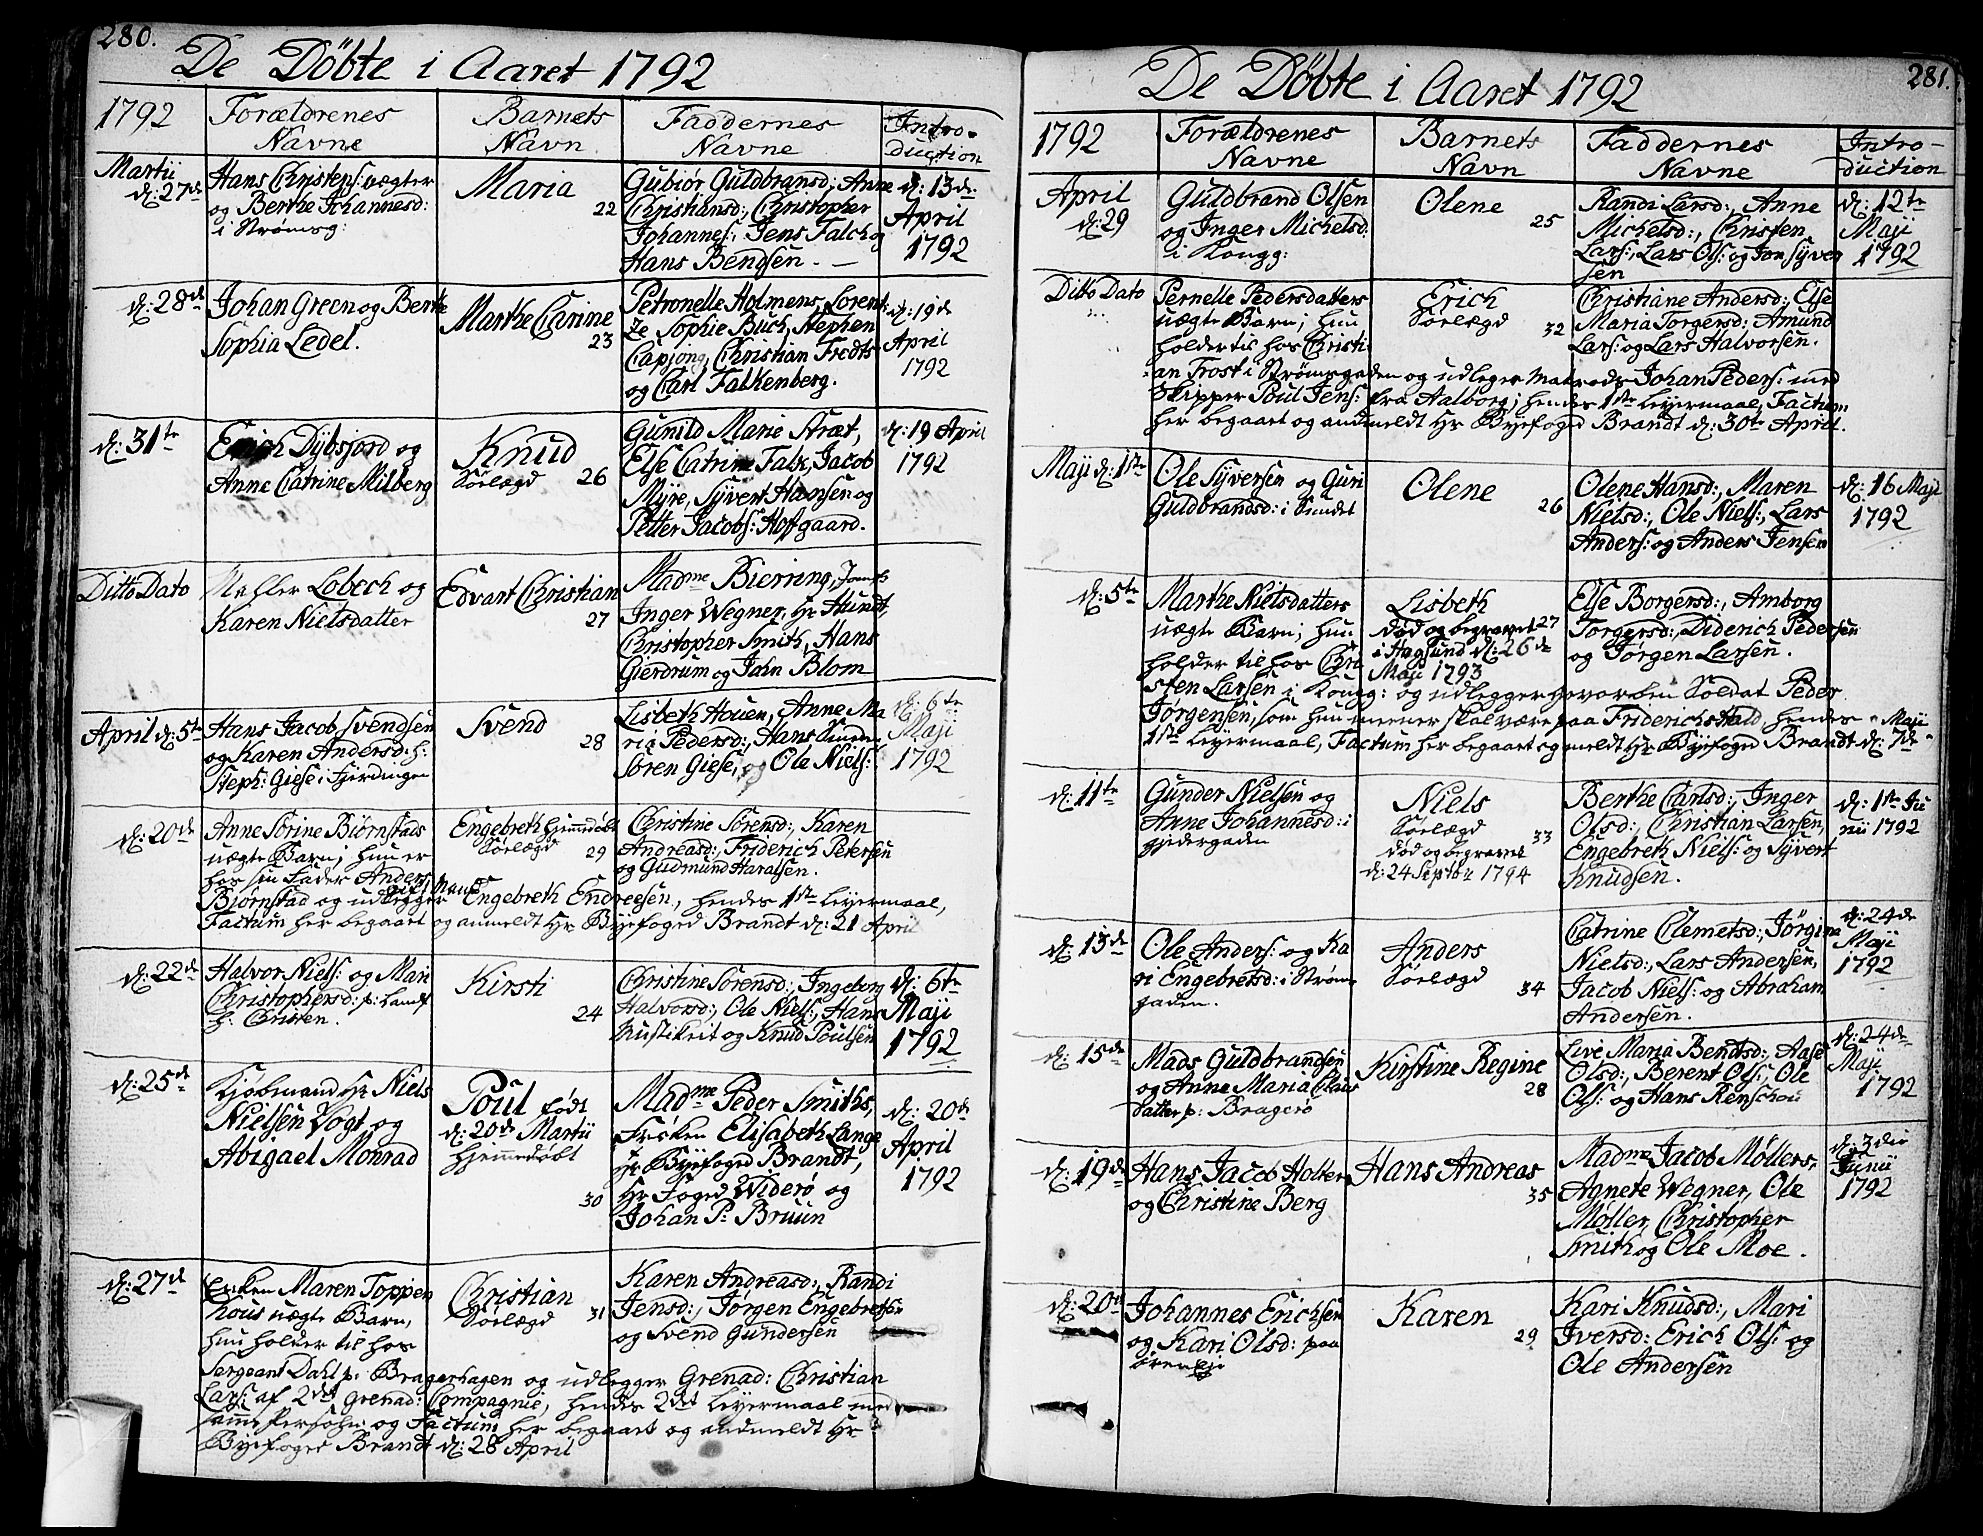 280.
De Döbte i Aaret 1792
1792
Forældrenes
Navne
Barnets
Navn
Faddernes
Navne
Intro-
duction
Martii
d: 27de
Hans Christens: vægter
og Berthe Johannesd:
i Strømsg:
Maria
22
Gubiør Guldbransd:, Anne
Christiansd:, Christopher
Johannes:, Jens Falch og
Hans Bendsen. —
d: 13de
April
1792
d: 28de
Johan Green og Berthe
Sophia Ledel.
Marthe Carine
23
Petronelle Holmens, Lorent-
ze Sophie Buch, Stephen
Capjong, Christian Fredts
og Carl Falkenberg.
d: 19de
April
1792
d: 31te
Erich Dybsjord og
Anne Catrine Milberg
Knud
Sörlægd 26
Gunild Marie Stræt,
Else Catrine Falk, Jacob
Myre, Syvert Hansen og
Petter Jacobs: Hofgaard.
d: 19 April
1792
Ditto Dato
Lobech og
Karen Nielsdatter
Edvart Christian
27
Madme Bierring, Jomf.
Inger Wegner, Hr Hundt,
Christopher Smith, Hans
Gierdrum og Jahn Blom
April d: 5te
Hans Jacob Svendsen
og Karen Andersd: h:
Steph: Giese i Fjerdingen
Svend
28
Lisbeth Houen, Anne Ma
ria Pedersd:, Hans
Sören Giese, og Ole Niels:
d: 6te
Maji
1792
d: 20de
Anne Sörine Biørnstads
uægte Barn; hun er
hos sin Fader Anders
Biørnstad og udlegger Engebreth Endresen, hendes 1ste leyermaal,
Factum her begaaet og anmeldt Hr Byefoged Brandt d: 21 April
Engebreth Hjemmedöbt
Sörlægd
29
Christine Sörensd:, Karen
Andreasd:, Friderich Petersen
og Gudmund Haralsen.
d: 22de
Halvor Niels: og Mari
Christophersd: p: Landf
h: Christen.
Kirsti
24
Christine Sörensd:, Ingeborg
Halvorsd:, Ole Niels:, Hans
Mustikrit og Knud Poulsen
d: 6te
Maji
1792
d: 25de
Kjøbmand Hr Niels
Nielsen Vogt og
Abigael Monrad
Poul født
d: 20de Martii
Hjemmedöbt
30
Madme Peder Smiths,
Frøken Elisabeth Lange
Hr Byefoged Brandt,
Hr Foged Widerö og
Johan P: Bruun
d: 20de
April
1792
d: 27de
Enken Maren Toppen
hous uægte Barn,
hun holder til hos
Sergeant Dahl p: Bragerhagen og udlegger Grenad: Christian
Lars: af 2det Grenad: Compagnie, hendes 2det leyermaal med
samme Persohn og Factum her begaaet og anmeldt Hr
Byefoged Brandt d: 28 April
Christian
Sörlægd 31
Karen Andreasd:, Randi
Jensd:, Jørgen Engebretsen
og Svend Gundersen
281.
De Döbte i Aaret 1792
1792
Forældrenes
Navne
Barnets
Navn
Faddernes
Navne
Intro-
duction
April
d: 29
Guldbrand Olsen
og Inger Michelsd.
i Kongg:
Olene
25
Randi Larsd:, Anne
Michelsd:, Christen
Lars:, Lars Ols: og Jon Syver
sen
d: 12te
Maji
1792
Ditto Dato
Pernelle Pedersdatters
uægte Barn; hun
holder til hos Christi-
an Frost i Strømsgaden og udleger Matrods Johan Peders: med
Skipper Poul Jens: fra Aalborg; hendes 1ste leyermaal, Factum
her begaaet og anmeldt Hr Byefoged Brandt d: 30te April.
Erich
Sörlægd
32
Christiane Andersd:, Else
Maria Torgersd: Amund
Lars: og Lars Halvorsen.
Maji d: 1ste
Ole Syversen og Guri
Guldbrandsd: i Sundet
Olene
26
Olene Hansd:, Maren
Nielsd:, Ole Niels:, Lars
Anders: og Anders Jensen
d: 16 Maji
1792
d: 5te
Marthe Nielsdatters
uægte Barn; hun
holder til hos Chri
sten Larsen i Kongg: og udlegger Soldat Peder
Jørgensen, som hun meener skal være paa Friderichshald, hendes
1ste leyermaal, Factum her begaaet og meldt Hr Byefoged Brandt d: 7de Maji
Lisbeth
død og begravet 27
i Hogsund d: 26de
Maji 1793
Else Borgersd:, Amborg
Torgersd:, Diderich Pedersen
og Jørgen Larsen.
d: 11te
Gunder Nielsen og
Anne Johannesd: i
Gjedergaden
Niels
Sörlægd
33
død og begravet
d: 24 Septbr 1794
Berthe Carlsd:, Inger
Olsd:, Christian Larsen,
Engebreth Niels: og Syvert
Knudsen.
d: 1ste Ju
nii 1792
d: 13de
Ole Anders: og Ka
ri Engebretsd: i Strøms
gaden.
Anders
Sörlægd
34
Catrine Clemetsd:, Jørgina
Nielsd:, Lars Andersen,
Jacob Niels: og Abraham
Andersen.
d: 24de
Maji
1792
d: 15de
Mads Guldbrandsen
og Anne Maria Claus
datter p: Bragerö
Kirstine Regine
28
Live Maria Bendsd:, Aase
Olsd:, Berent Ols:, Ole
Ols: og Hans Renschou
d: 24de
Maji
1792
d: 19de
Hans Jacob Holter
og Christine Berg
Hans Andreas
35
Madme Jacob Möllers,
Agnete Wegner, Ole
Möller, Christopher
Smith og Ole Moe.
d: 3die
Junii
1792
d: 20de
Johannes Erichsen
og Kari Olsd: paa
Karen
29
Kari Knudsd:, Mari
Iversd: Erich Ols: og
Ole Andersen